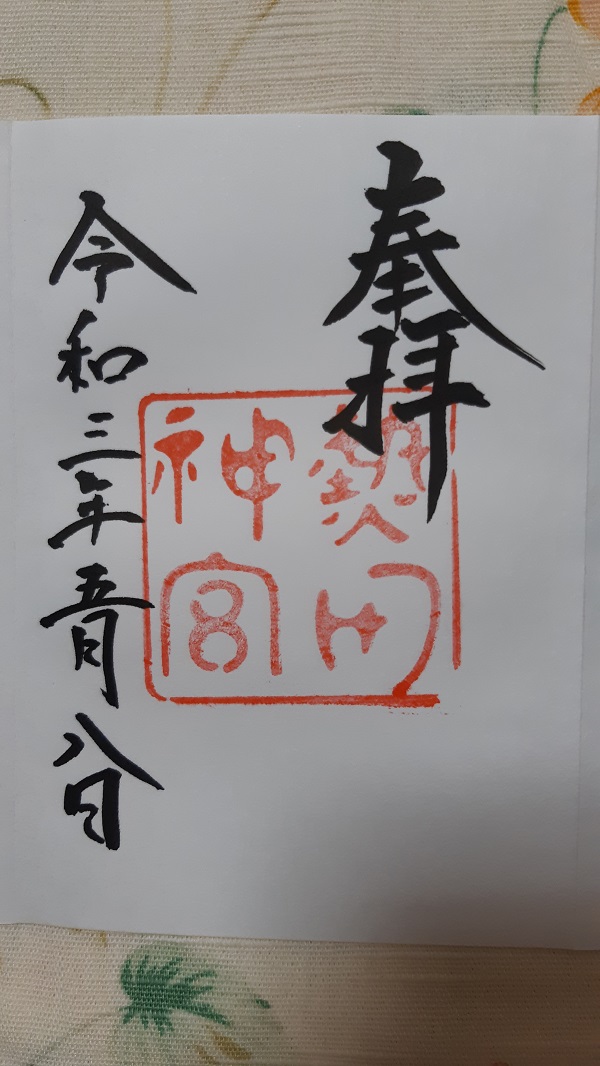 奉拝
熱田
神宮
令和三年五月八日